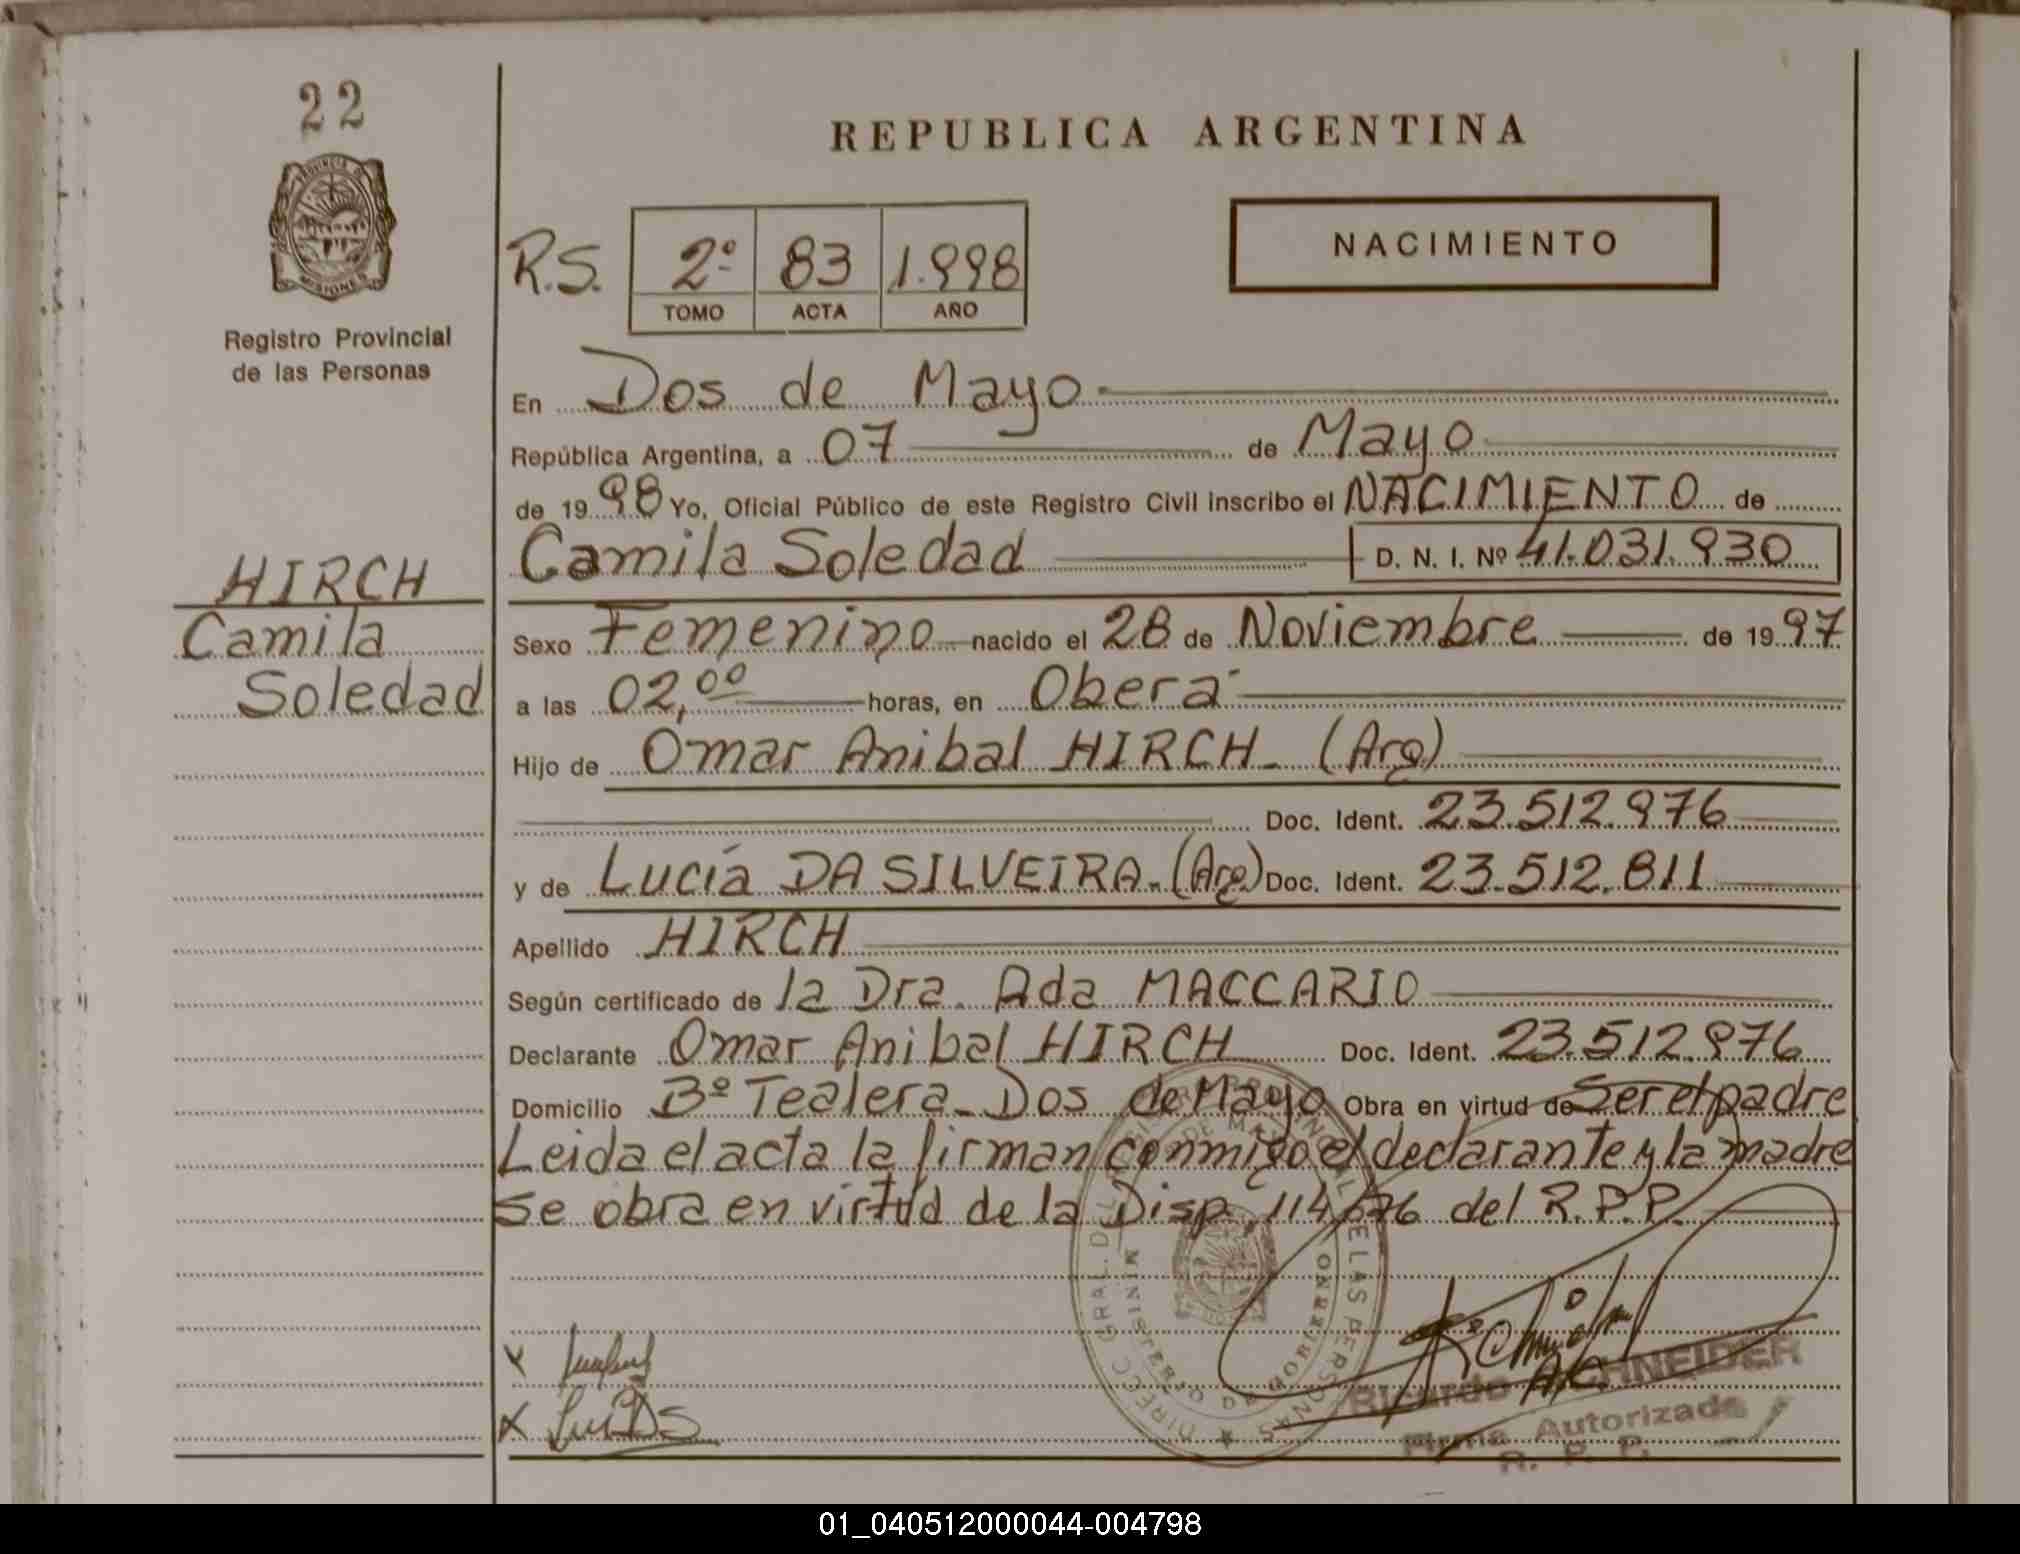 22
REPUBLICA ARGENTINA
PROVINCIA DE
MISIONES
Registro Provincial
de las Personas
R.S.
2º 83 1.998
TOMO ACTA AÑO
NACIMIENTO
En Dos de Mayo
República Argentina, a 07 de Mayo
de 1998 Yo, Oficial Público de este Registro Civil inscribo el NACIMIENTO de
Camila Soledad D. N. I. Nº 41.031.930
HIRCH
Camila
Soledad
Sexo Femenino nacido el 28 de Noviembre de 1997
a las 02,00 horas, en Oberá
Hijo de Omar Anibal HIRCH. (Arg)
Doc. Ident. 23.512.976
y de Lucía DA SILVEIRA. (Arg) Doc. Ident. 23.512.811
Apellido HIRCH
Según certificado de la Dra. Ada MACCARIO
Declarante Omar Anibal HIRCH Doc. Ident. 23.512.976
Domicilio Bº Tealera. Dos de Mayo Obra en virtud de Ser el padre
Leida el acta la firman conmigo el declarante y la madre
Se obra en virtud de la Disp. 114/76 del R.P.P.
MINISTERIO DE GOBIERNO
Ricardo SCHNEIDER
Firma Autorizada
R. P. P.
01_040512000044-004798